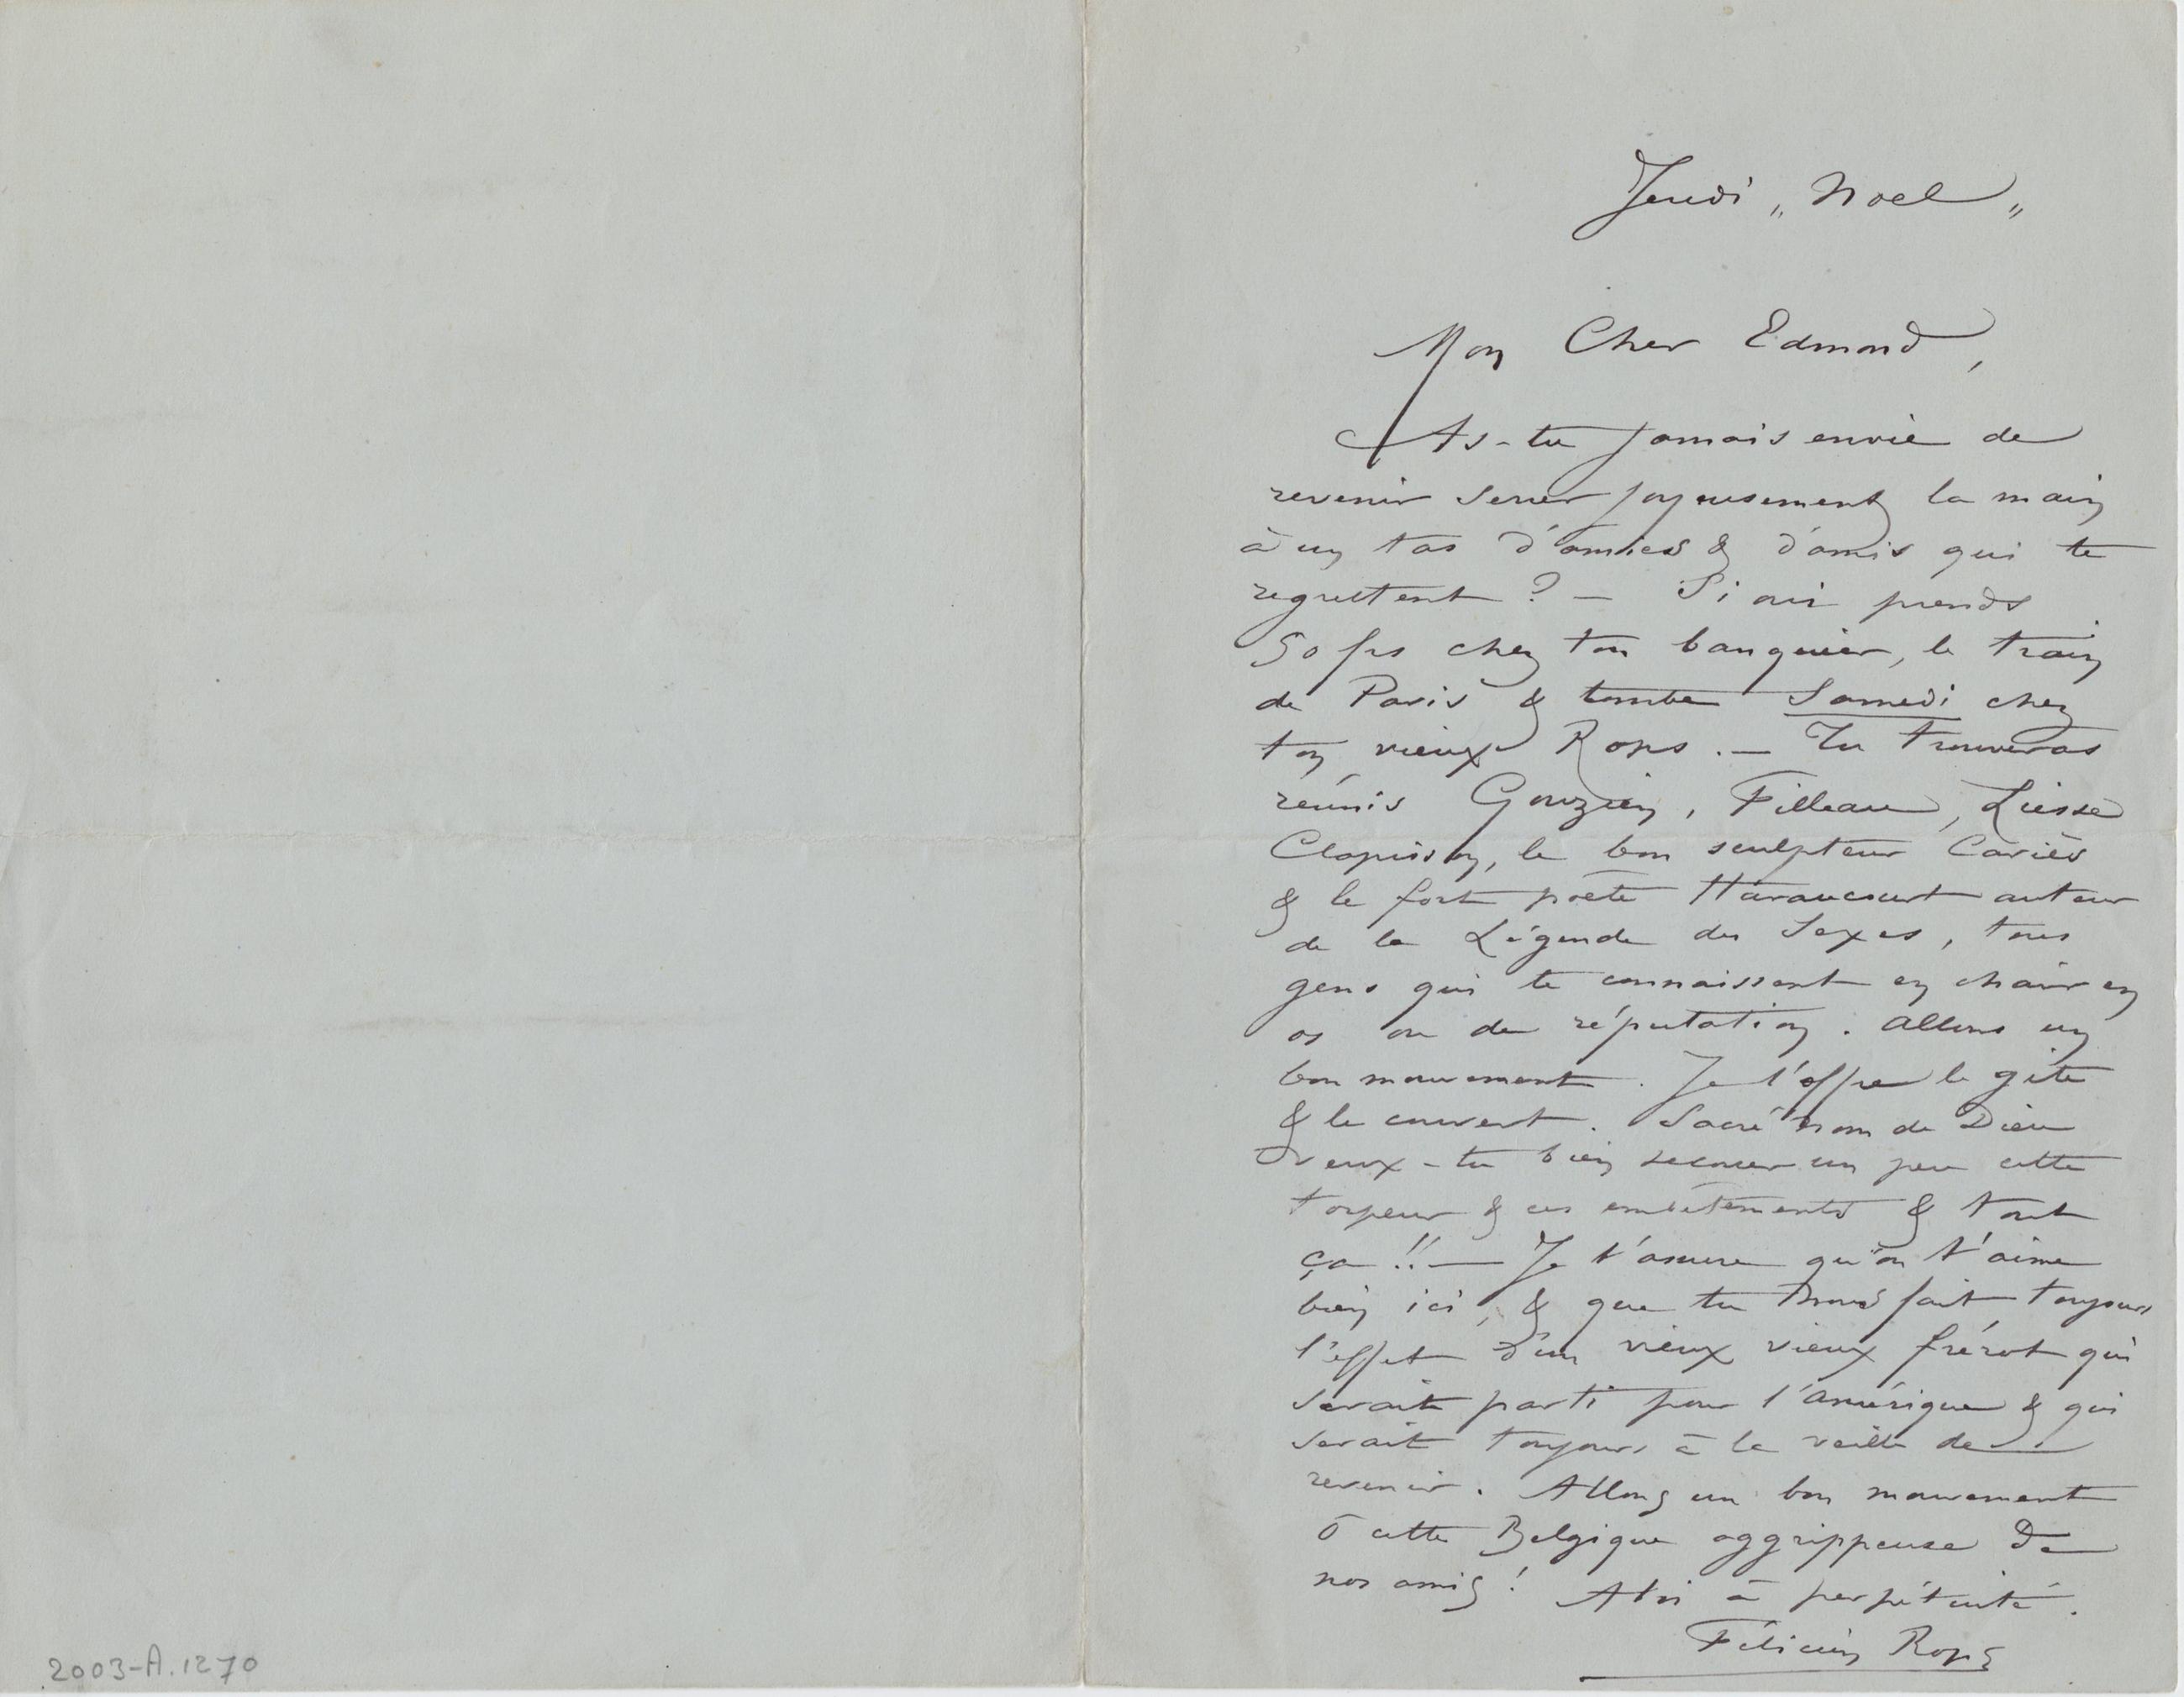 Jeudi „ Noel „
Mon Cher Edmond,
As-tu jamais envie de
revenir serrer joyeusement la main
à un tas d'amies & d'amis qui te
regrettent ? — Si oui prends
50 frs chez ton banquier, le train
de Paris & tombe Samedi chez
ton vieux Rops. — Tu trouveras
réunis Gouzien, Filleau, Liesse
Clapisson, le bon sculpteur Cariès
& le fort poète Haraucourt auteur
de la Légende des Sexes, tous
gens qui te connaissent en chair en
os ou de réputation. Allons un
bon mouvement. Je t'offre le gite
& le couvert. Sacré nom de Dieu
veux-tu bien secouer un peu cette
torpeur & ces embêtements & tout
ça !! — Je t'assure qu'on t'aime
bien ici, & que tu nous fait toujours
l'effet d'un vieux vieux frérot qui
serait parti pour l'Amérique & qui
serait toujours à la veille de
revenir. Allons un bon mouvement
ô cette Belgique aggrippeuse de
nos amis ! A toi à perpétuité.
Félicien Rops
2003-A.1270